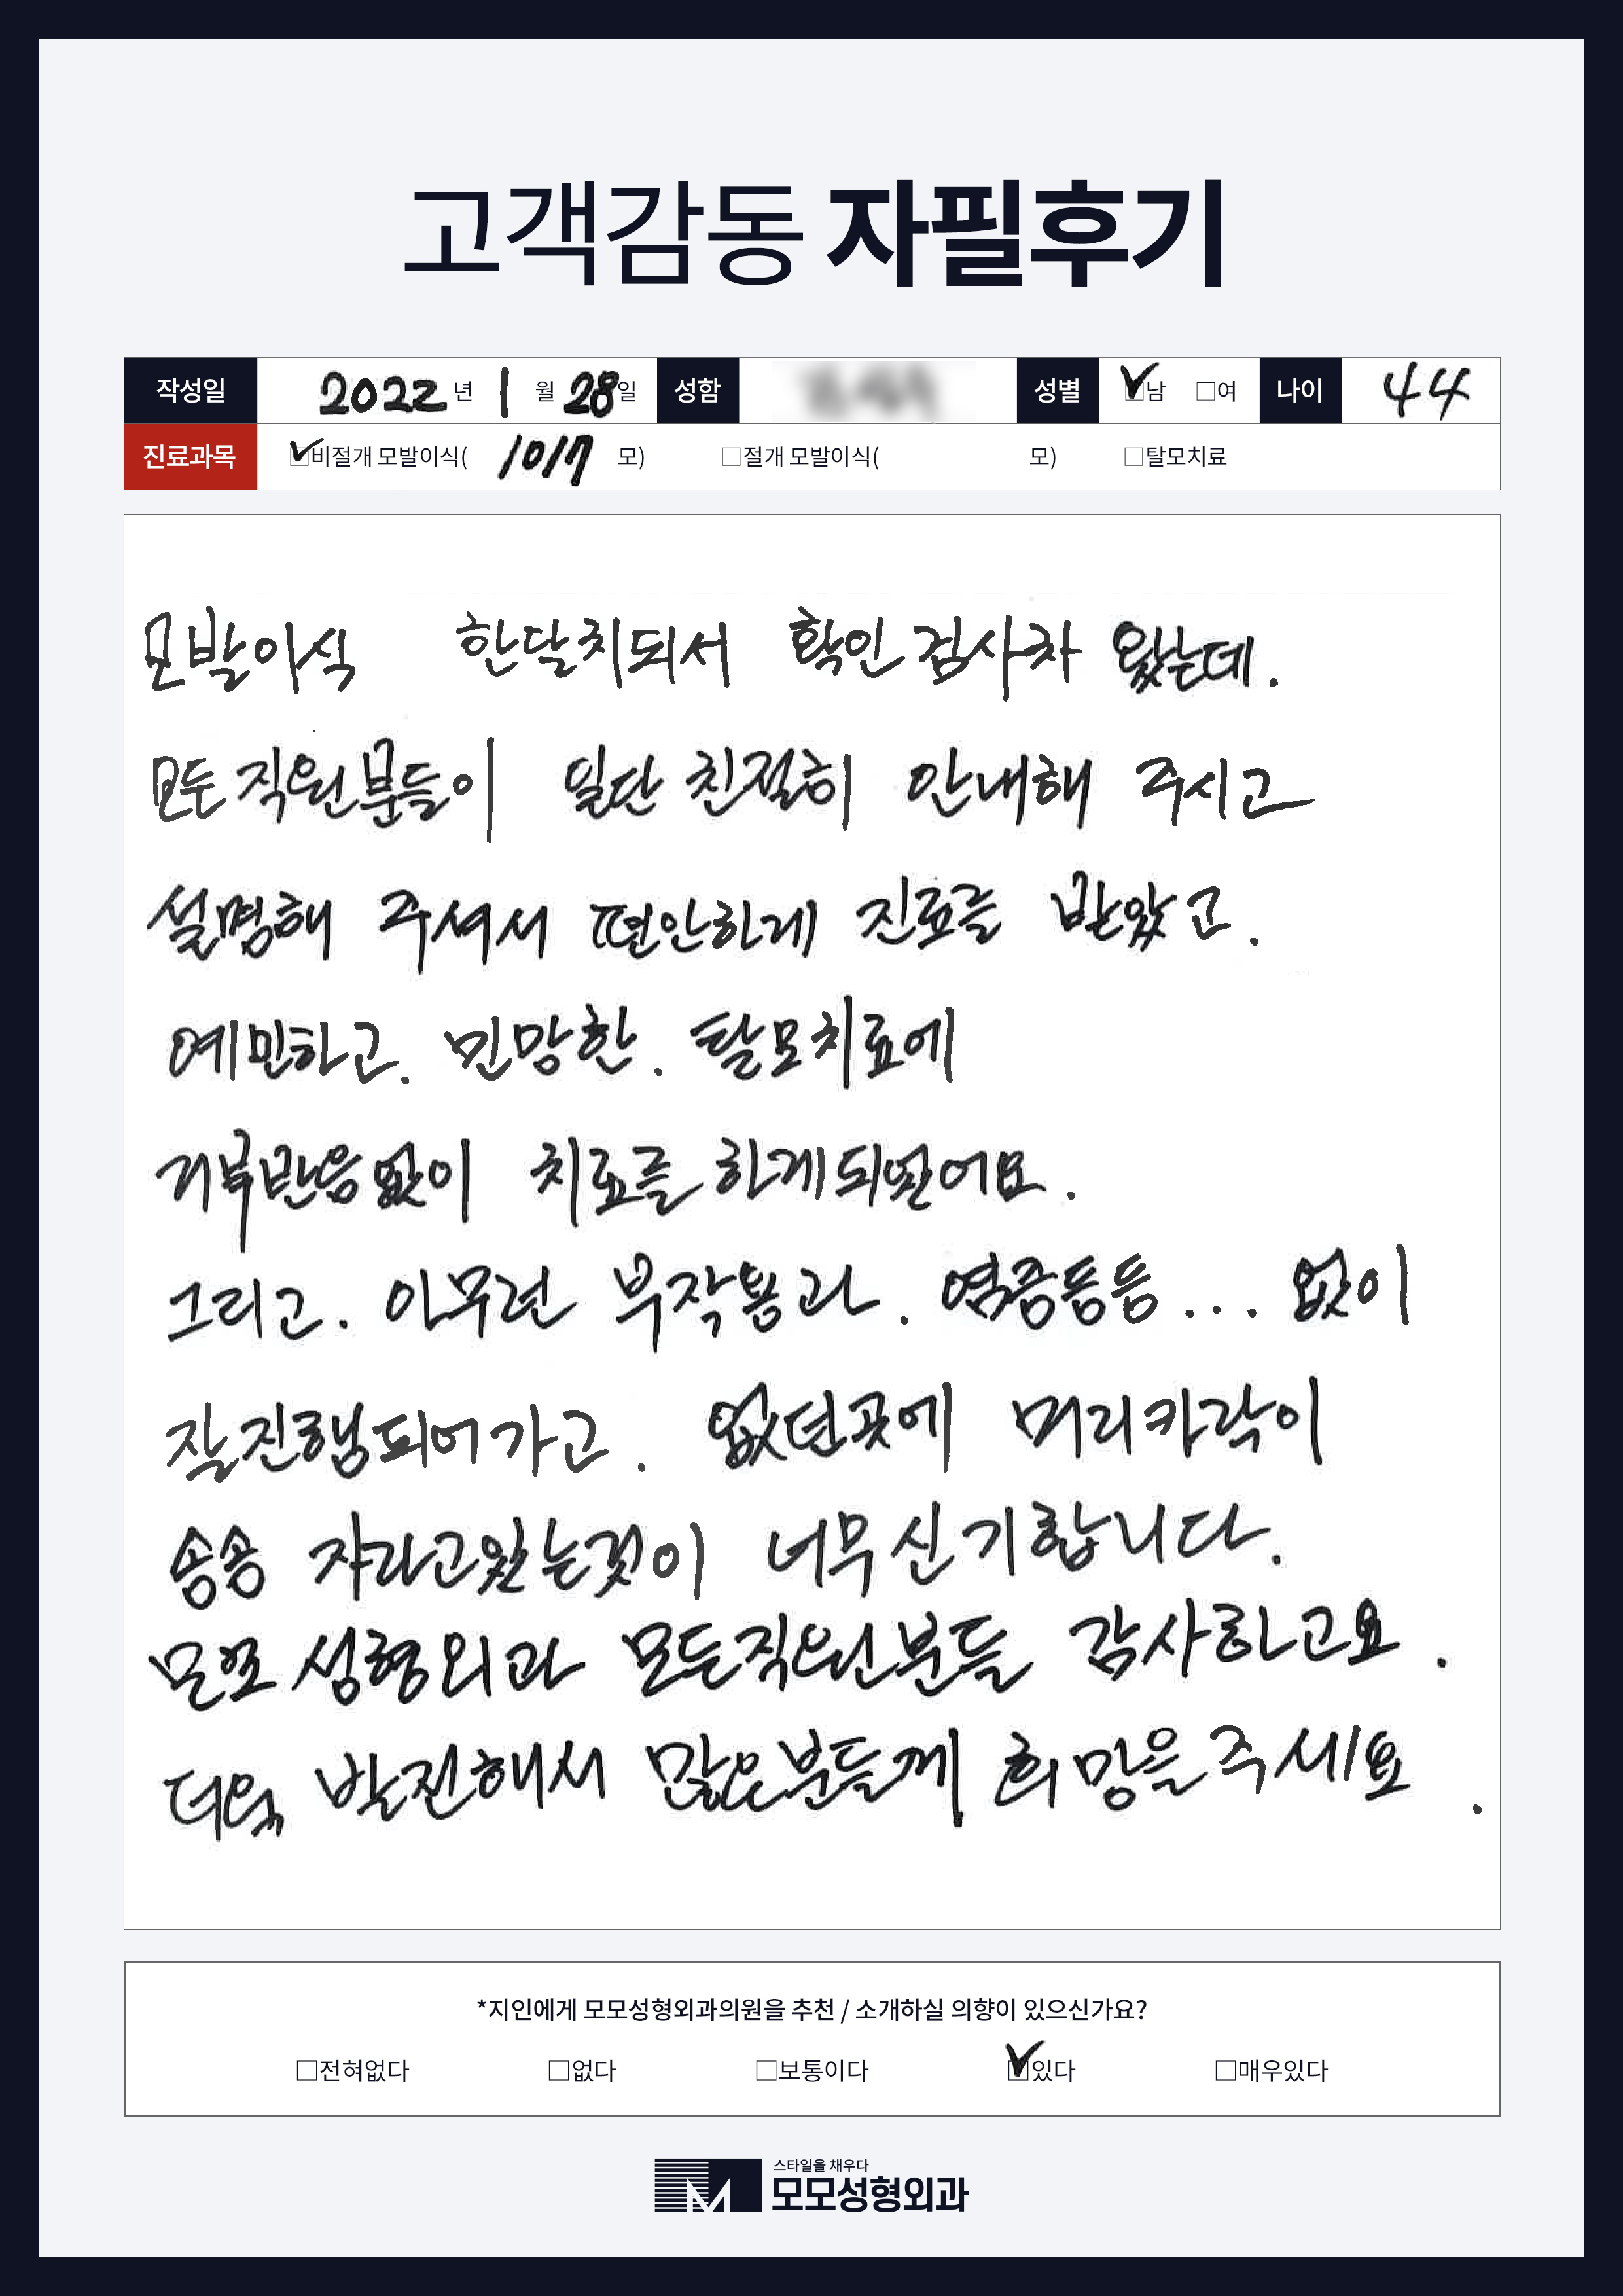 고객감동 자필후기
작성일 2022 년 1 월 28일 성함 성별 ☑남 □여 나이 44
진료과목 ☑비절개 모발이식( 1017 모) □절개 모발이식( 모) □탈모치료
모발이식 한달치되서 확인검사차 왔는데.
모든직원분들이 일단 친절히 안내해 주시고
설명해 주셔서 편안하게 진료를 받았고.
예민하고. 민망한. 탈모치료에
거부반응없이 치료를 하게되었어요.
그리고. 아무런 부작용과. 염증등등... 없이
잘진행되어가고. 없던곳에 머리카락이
송송 자라고있는것이 너무신기합니다.
모모성형외과 모든직원분들 감사하고요.
더욱 발전해서 많은분들께 희망을주세요.
*지인에게 모모성형외과의원을 추천 / 소개하실 의향이 있으신가요?
□전혀없다 □없다 □보통이다 ☑있다 □매우있다
스타일을 채우다
모모성형외과